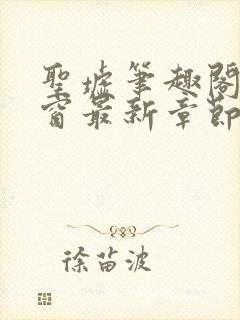 聖墟筆趣閣
窗最新章節
徐苗波